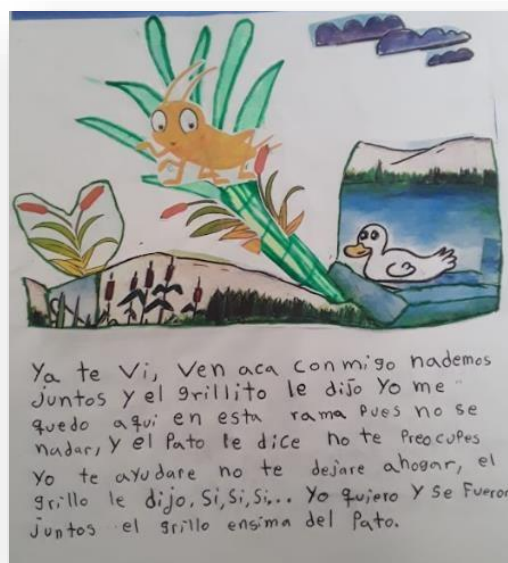 Ya te Vi, Ven aca conmigo nademos
juntos y el grillito le dijo Yo me
quedo aqui en esta rama Pues no se
nadar, y el Pato le dice no te Preocupes
Yo te ayudare no te dejare ahogar, el
grillo le dijo, Si, Si, Si... Yo quiero Y Se Fueron
juntos el grillo ensima del Pato.